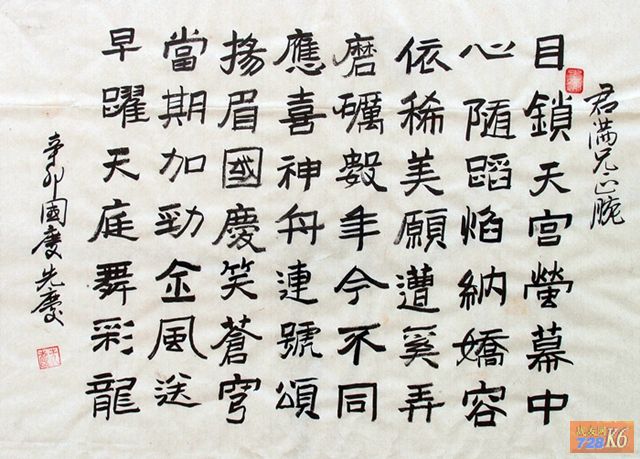 君满兄正腕
目鎖天宫螢幕中
心随蹈焰納嬌容
依稀美願遭奚弄
磨礪數年今不同
應喜神舟連號頌
揚眉國慶笑蒼穹
當期加勁金風送
早躍天庭舞彩龍
辛卯國慶先慶
战友网
728K6